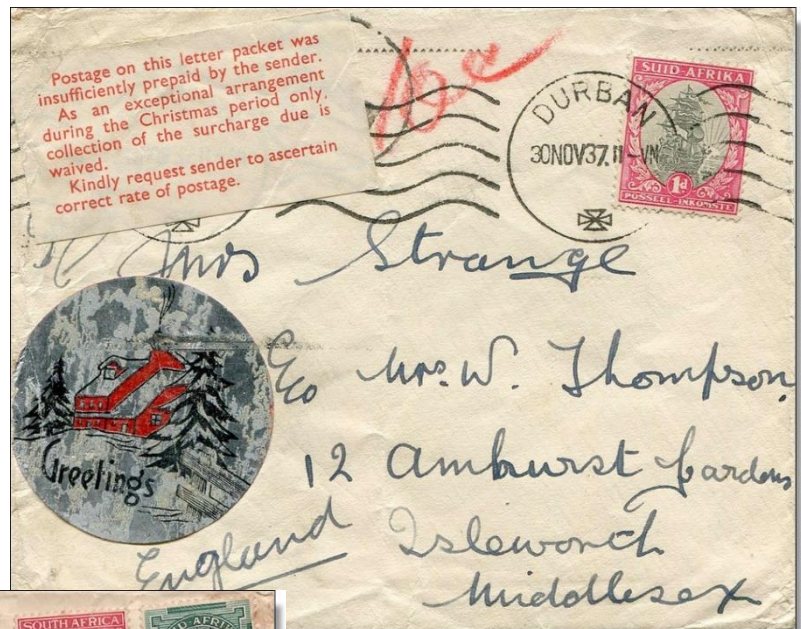 Postage on this letter packet was
insufficiently prepaid by the sender.
As an exceptional arrangement
during the Christmas period only,
collection of the surcharge due is
waived.
Kindly request sender to ascertain
correct rate of postage.
DURBAN
30NOV37.11-VN
SUID-AFRIKA
1d
POSSEEL-INKOMSTE
Mrs Strange
C/o Mrs. W. Thompson,
12 Amhurst Gardens
Isleworth
Middlesex
England
Greetings
SOUTH AFRICA